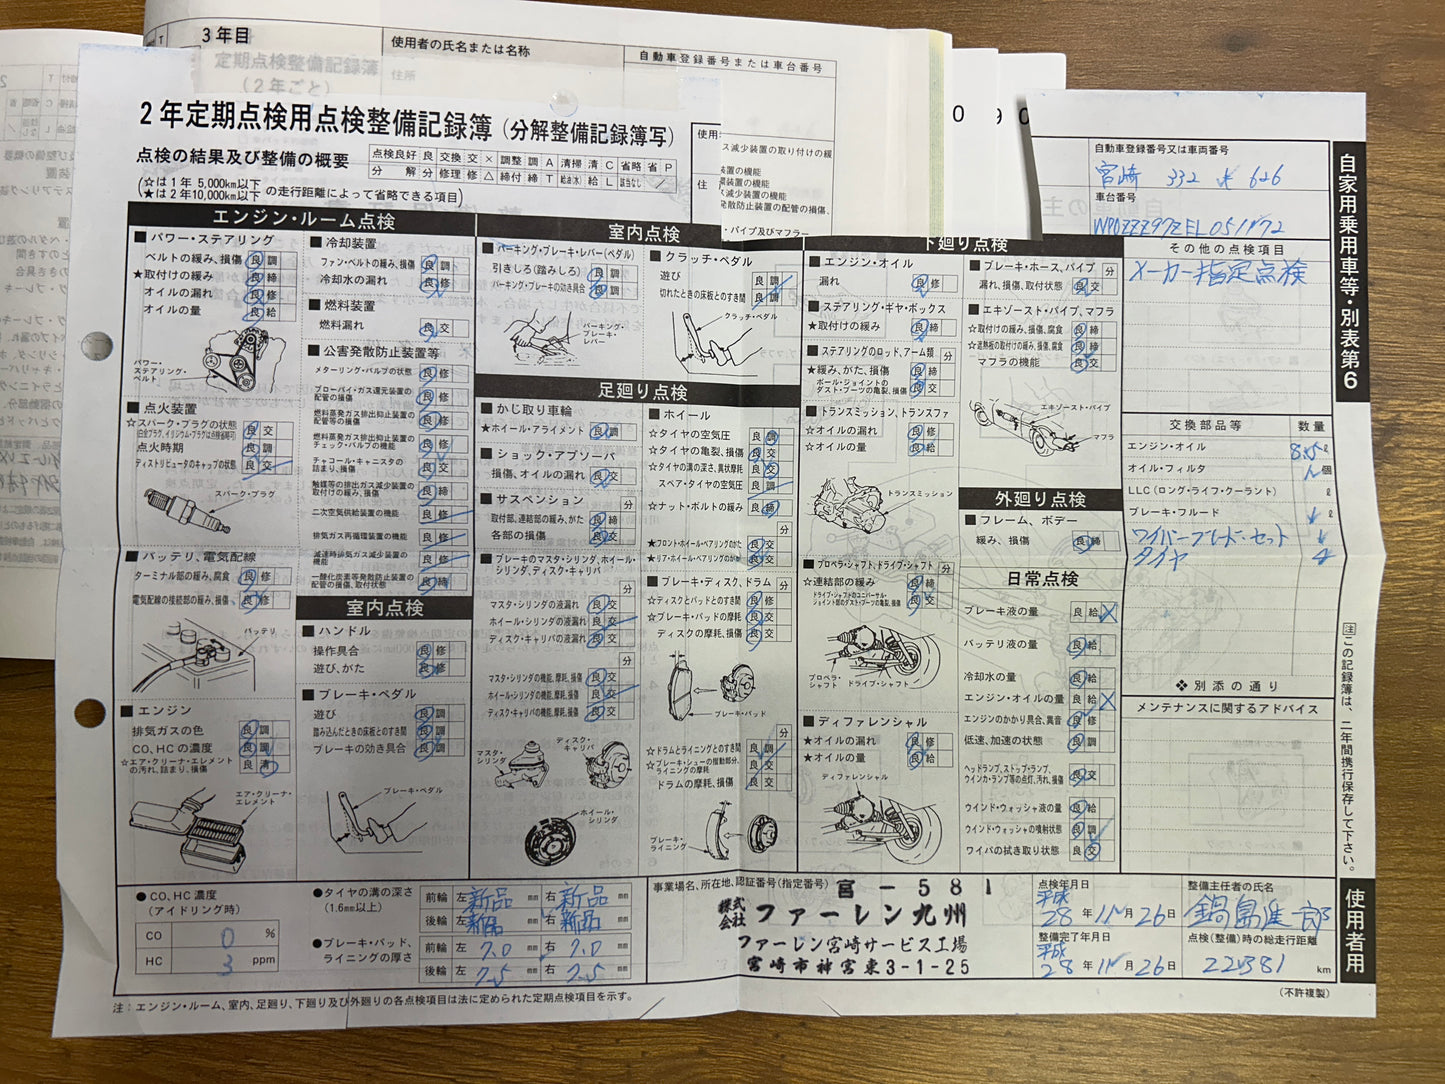 3年目
定期点検整備記録簿
(2年ごと)
使用者の氏名または名称
住所
自動車登録番号または車台番号
2年定期点検用点検整備記録簿(分解整備記録簿写)
点検の結果及び整備の概要
(☆は1年 5,000km以下
★は2年10,000km以下 の走行距離によって省略できる項目)
点検良好 良 交換 交 × 調整 調 A 清掃 清 C 省略 省 P
分解 分 修理 修 △ 締付 締 T 給油(水) 給 L 該当なし ／
住
自動車登録番号又は車両番号
宮崎 332 626
車台番号
その他の点検項目
メーカー指定点検
自家用乗用車等・別表第6
エンジン・ルーム点検
■パワー・ステアリング
ベルトの緩み、損傷 良 調
★取付けの緩み 良 締
オイルの漏れ 良 修
オイルの量 良 給
パワー・ステアリング・ベルト
■点火装置
☆スパーク・プラグの状態 良 交
(白金プラグ、イリジウム・プラグは点検省略可)
点火時期 良 調
ディストリビュータのキャップの状態 良 交
スパーク・プラグ
■バッテリ、電気配線
ターミナル部の緩み、腐食 良 修
電気配線の接続部の緩み、損傷 良 修
バッテリ
■エンジン
排気ガスの色 良 調
CO、HCの濃度 良 調
☆エア・クリーナ・エレメントの汚れ、詰まり、損傷 良 清
エア・クリーナ・エレメント
■冷却装置
ファン・ベルトの緩み、損傷 良 調
冷却水の漏れ 良 修
■燃料装置
燃料漏れ 良 交
■公害発散防止装置等
メターリング・バルブの状態 良 修
ブローバイ・ガス還元装置の配管の損傷 良 修
燃料蒸発ガス排出抑止装置の配管等の損傷 良 修
燃料蒸発ガス排出抑止装置のチェック・バルブの機能 良 修
チャコール・キャニスタの詰まり、損傷 良 交
触媒等の排出ガス減少装置の取付けの緩み、損傷 良 締
二次空気供給装置の機能 良 修
排気ガス再循環装置の機能 良 修
減速時排気ガス減少装置の機能 良 修
一酸化炭素等発散防止装置の配管の損傷、取付状態 良 締
室内点検
■ハンドル
操作具合 良 修
遊び、がた 良 修
■ブレーキ・ペダル
遊び 良 調
踏み込んだときの床板とのすき間 良 調
ブレーキの効き具合 良 調
ブレーキ・ペダル
室内点検
■パーキング・ブレーキ・レバー(ペダル)
引きしろ(踏みしろ) 良 調
パーキング・ブレーキの効き具合 良 調
パーキング・ブレーキ・レバー
■クラッチ・ペダル
遊び 良 調
切れたときの床板とのすき間 良 調
クラッチ・ペダル
足廻り点検
■かじ取り車輪
★ホイール・アライメント 良 調
■ショック・アブソーバ
損傷、オイルの漏れ 良 交
■サスペンション 分
取付部、連結部の緩み、がた 良 締
各部の損傷 良 交
■ブレーキのマスタ・シリンダ、ホイール・シリンダ、ディスク・キャリパ 分
マスタ・シリンダの液漏れ 良 交
ホイール・シリンダの液漏れ 良 交
ディスク・キャリパの液漏れ 良 交
分
マスタ・シリンダの機能、摩耗、損傷 良 交
ホイール・シリンダの機能、摩耗、損傷 良 交
ディスク・キャリパの機能、摩耗、損傷 良 交
マスタ・シリンダ
ディスク・キャリパ
ホイール・シリンダ
■ホイール
☆タイヤの空気圧 良 調
☆タイヤの亀裂、損傷 良 交
☆タイヤの溝の深さ、異状摩耗 良 交
スペア・タイヤの空気圧 良 調
☆ナット・ボルトの緩み 良 締
分
★フロント・ホイール・ベアリングのがた 良 交
★リア・ホイール・ベアリングのがた 良 交
■ブレーキ・ディスク、ドラム 分
☆ディスクとパッドとのすき間 良 修
☆ブレーキ・パッドの摩耗 良 交
ディスクの摩耗、損傷 良 交
ブレーキ・パッド
☆ドラムとライニングとのすき間 良 調
☆ブレーキ・シューの摺動部分、ライニングの摩耗 良 交
ドラムの摩耗、損傷 良 交
ブレーキ・ライニング
下廻り点検
■エンジン・オイル
漏れ 良 修
■ステアリング・ギヤ・ボックス
★取付けの緩み 良 締
■ステアリングのロッド、アーム類 分
★緩み、がた、損傷 良 締
ボール・ジョイントのダスト・ブーツの亀裂、損傷 良 交
■トランスミッション、トランスファ
☆オイルの漏れ 良 修
☆オイルの量 良 給
トランスミッション
■プロペラ・シャフト、ドライブ・シャフト 分
☆連結部の緩み 良 締
ドライブ・シャフトのユニバーサル・ジョイント部のダスト・ブーツの亀裂、損傷 良 交
プロペラ・シャフト
ドライブ・シャフト
■ディファレンシャル
★オイルの漏れ 良 修
★オイルの量 良 給
ディファレンシャル
■ブレーキ・ホース、パイプ 分
漏れ、損傷、取付状態 良 交
■エキゾースト・パイプ、マフラ
☆取付けの緩み、損傷、腐食 良 締
☆遮熱板の取付けの緩み、損傷、腐食 良 締
マフラの機能 良 交
エキゾースト・パイプ
マフラ
外廻り点検
■フレーム、ボデー
緩み、損傷 良 締
日常点検
ブレーキ液の量 良 給
バッテリ液の量 良 給
冷却水の量 良 給
エンジン・オイルの量 良 給
エンジンのかかり具合、異音 良 修
低速、加速の状態 良 調
ヘッドランプ、ストップ・ランプ、ウインカ・ランプ等の点灯、汚れ、損傷 良 交
ウインド・ウォッシャ液の量 良 給
ウインド・ウォッシャの噴射状態 良 調
ワイパの拭き取り状態 良 交
交換部品等 数量
エンジン・オイル ℓ
オイル・フィルタ 個
LLC(ロング・ライフ・クーラント) ℓ
ブレーキ・フルード ℓ
ワイパーブレード・セット
タイヤ 4
❖別添の通り
メンテナンスに関するアドバイス
注 この記録簿は、二年間携行保存して下さい。
使用者用
●CO、HC濃度
(アイドリング時)
CO 0 %
HC 3 ppm
●タイヤの溝の深さ
(1.6mm以上)
前輪 左 新品 mm 右 新品 mm
後輪 左 新品 mm 右 新品 mm
●ブレーキ・パッド、ライニングの厚さ
前輪 左 7.0 mm 右 7.0 mm
後輪 左 7.5 mm 右 7.5 mm
事業場名、所在地、認証番号(指定番号) 宮-581
株式会社 ファーレン九州
ファーレン宮崎サービス工場
宮崎市神宮東3-1-25
点検年月日
平成28年11月26日
整備完了年月日
平成28年11月26日
整備主任者の氏名
点検(整備)時の総走行距離
22381 km
注:エンジン・ルーム、室内、足廻り、下廻り及び外廻りの各点検項目は法に定められた定期点検項目を示す。
(不許複製)